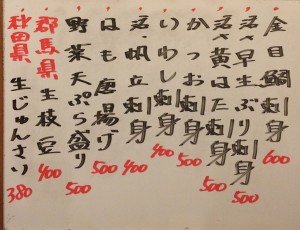 金目鯛刺身 600
活〆早生ぶり刺身 500
活〆黄はた刺身 500
かつお刺身 500
いわし刺身 400
活〆帆立刺身 400
はも唐揚げ 500
野菜天ぷら盛り 500
群馬県 生枝豆 400
秋田県 生じゅんさい 380